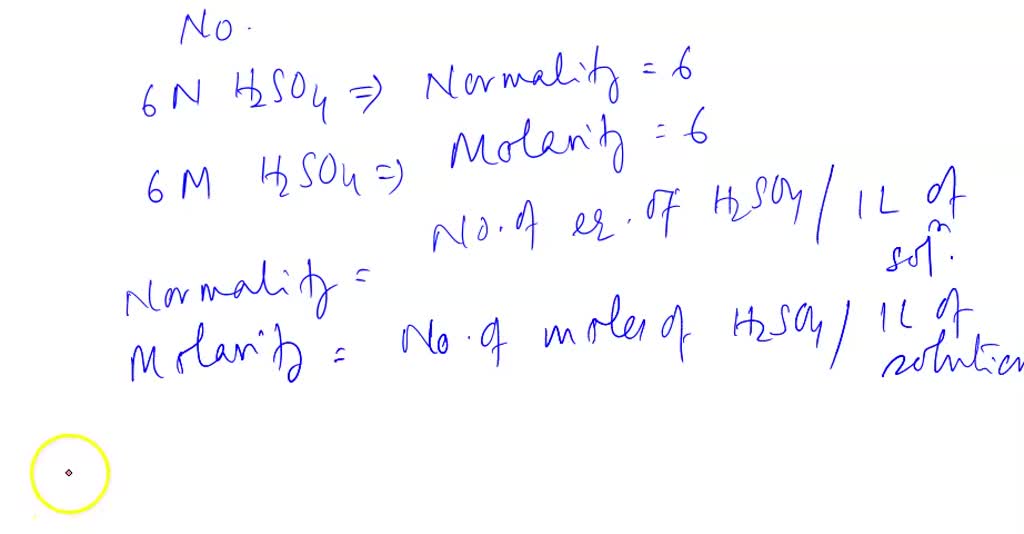 No.
6N H2SO4 ⇒ Normality = 6
6M H2SO4 ⇒ Molarity = 6
Normality = No. of eq. of H2SO4 / 1L of soln.
Molarity = No. of moles of H2SO4 / 1L of solution